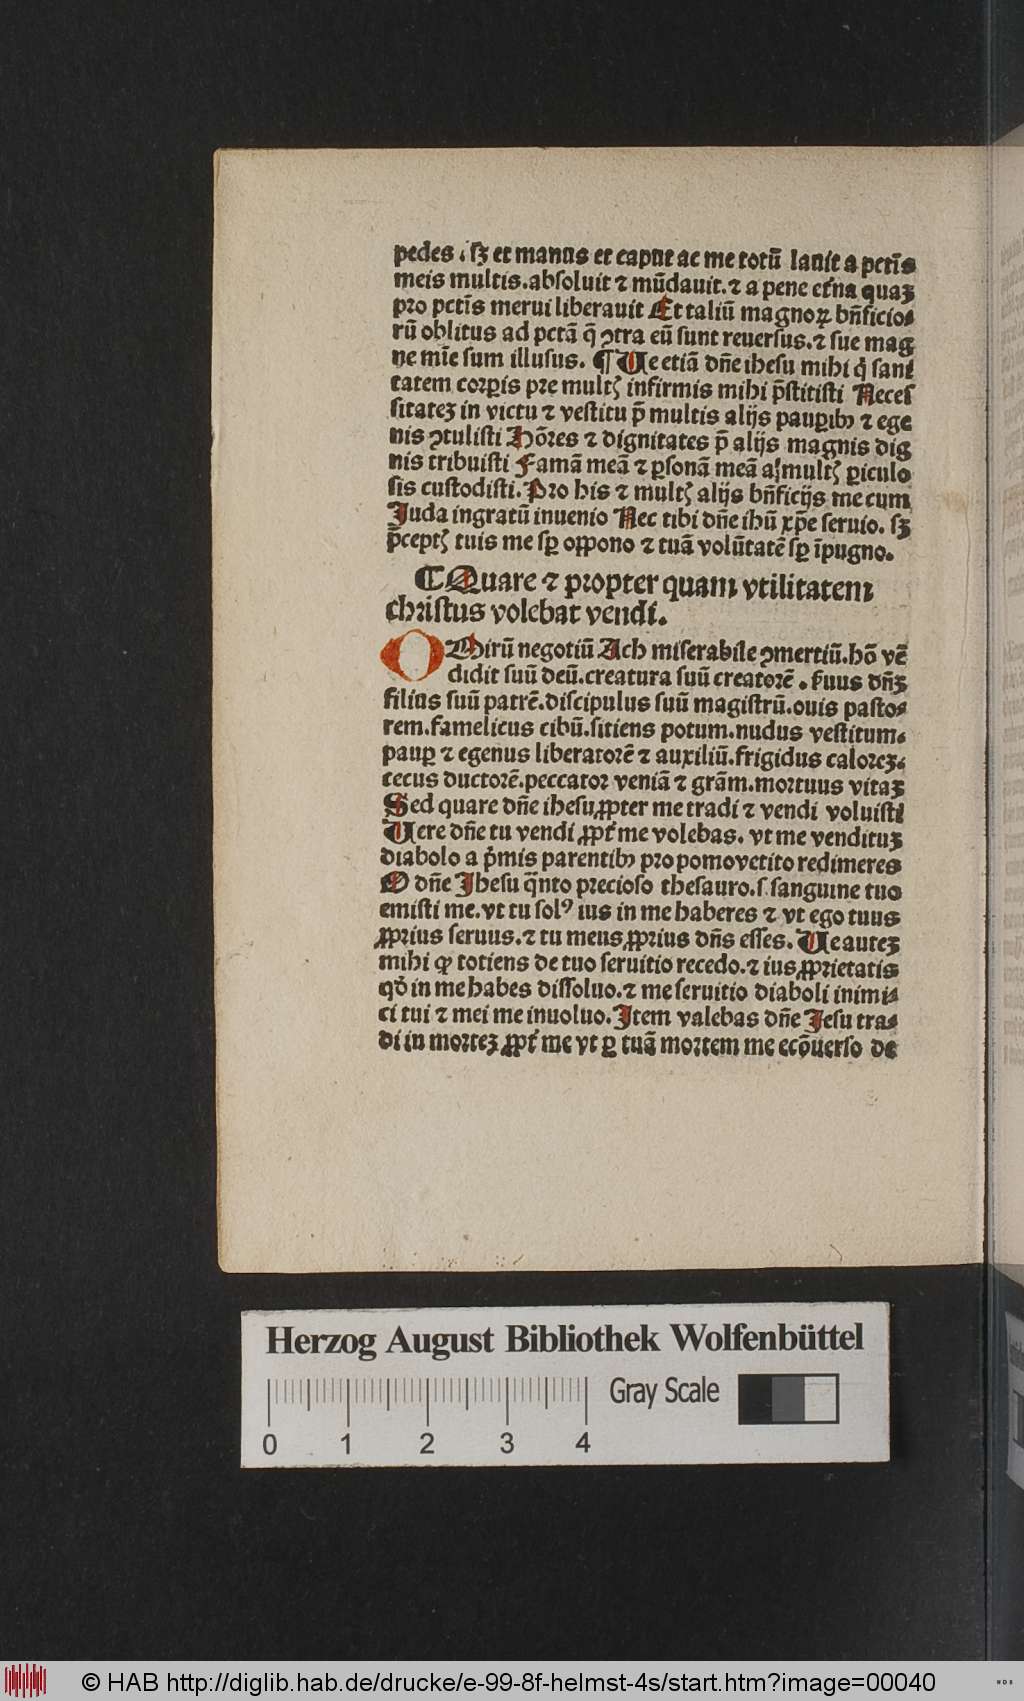 pedes. ſꝫ et manus et caput ac me totū lauit a pctīs
meis multis.abſoluit ⁊ mūdauit.⁊ a pene et̄na quaꝫ
pro pctīs merui liberauit Et taliū magnoꝝ bn̄ficio⸗
rū oblitus ad pctā q̄ ꝯtra eū ſunt reuerſus.⁊ ſue mag
ne mīe ſum illuſus. ¶ Ue etiā dn̄e iheſu mihi q̇ ſani
tatem corꝑis pre multꝭ infirmis mihi p̄ſtitiſti Neceſ
ſitateꝫ in victu ⁊ veſtitu p̄ multis alijs pauꝑibꝰ ⁊ ege
nis ꝯtuliſti Hōres ⁊ dignitates p̄ alijs magnis dig
nis tribuiſti Famā meā ⁊ ꝑſonā meā a multꝭ ꝑiculo
ſis cuſtodiſti. Pro his ⁊ multꝭ alijs bn̄ficijs me cum
Juda ingratū inuenio Nec tibi dn̄e ihū xp̄e ſeruio. ſꝫ
p̄ceptꝭ tuis me ſꝑ oꝑpono ⁊ tuā volūtatē ſꝑ īpugno.
¶ Quare ⁊ propter quam vtilitatem
chriſtus volebat vendi.
O Mirū negotiū Ach miſerabile ꝯmertiū.hō vē
didit ſuū deū.creatura ſuū creatorē. ẜuus dn̄ꝫ
filius ſuū patrē.diſcipulus ſuū magiſtrū.ouis paſto⸗
rem.famelicus cibū.ſitiens potum.nudus veſtitum.
pauꝑ ⁊ egenus liberatorē ⁊ auxiliū.frigidus caloreꝫ.
cecus ductorē.peccator veniā ⁊ grām.mortuus vitaꝫ
Sed quare dn̄e iheſu ꝓpter me tradi ⁊ vendi voluiſti
Uere dn̄e tu vendi ꝓpt̄ me volebas. vt me vendituꝫ
diabolo a p̄mis parentibꝰ pro pomo vetito redimeres
O dn̄e Jheſu q̄nto precioſo theſauro.ſ. ſanguine tuo
emiſti me.vt tu ſolꝰ ius in me haberes ⁊ vt ego tuus
ꝓprius ſeruus.⁊ tu meus ꝓprius dn̄s eſſes. Ue auteꝫ
mihi ꝙ totiens de tuo ſeruitio recedo.⁊ ius ꝓprietatis
qd̄ in me habes diſſoluo.⁊ me ſeruitio diaboli inimi⸗
ci tui ⁊ mei me inuoluo. Item valebas dn̄e Jeſu tra⸗
di in morteꝫ ꝓpt̄ me vt ꝑ tuā mortem me ecōuerſo de
Herzog August Bibliothek Wolfenbüttel
Gray Scale
0 1 2 3 4
© HAB http://diglib.hab.de/drucke/e-99-8f-helmst-4s/start.htm?image=00040